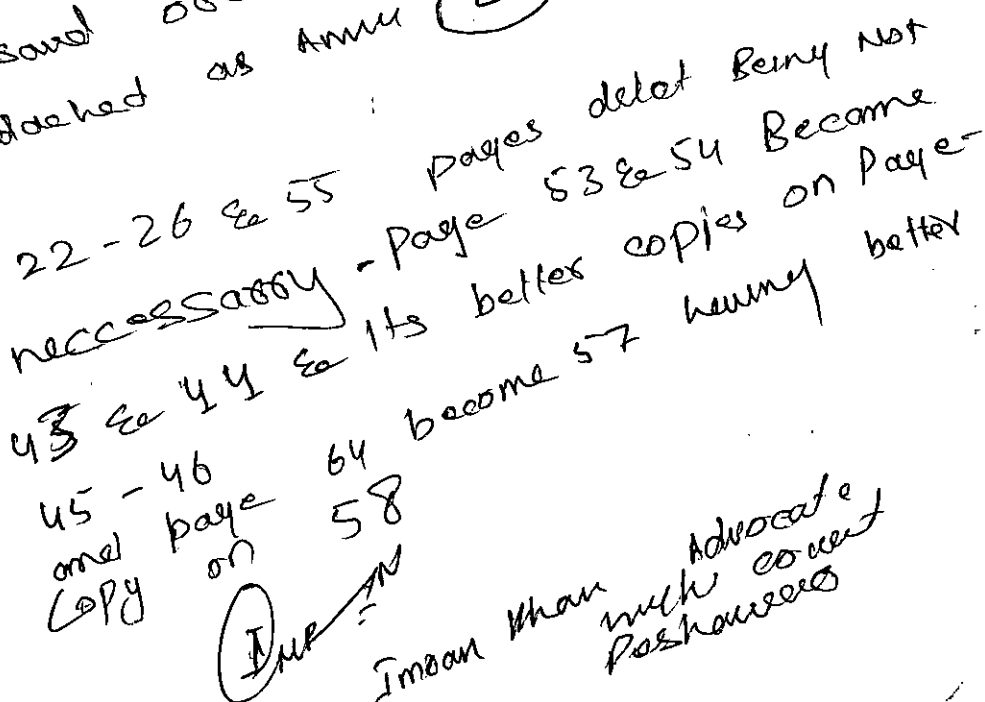 attached as Annex
22-26 & 55 pages delet Being Not
neccessarry - Page 53 & 54 Become
43 & 44 & its better copies on Page-
45-46
and page 64 become 57 having better
copy on 58
Imran Khan Advocate
High Court
Peshawar